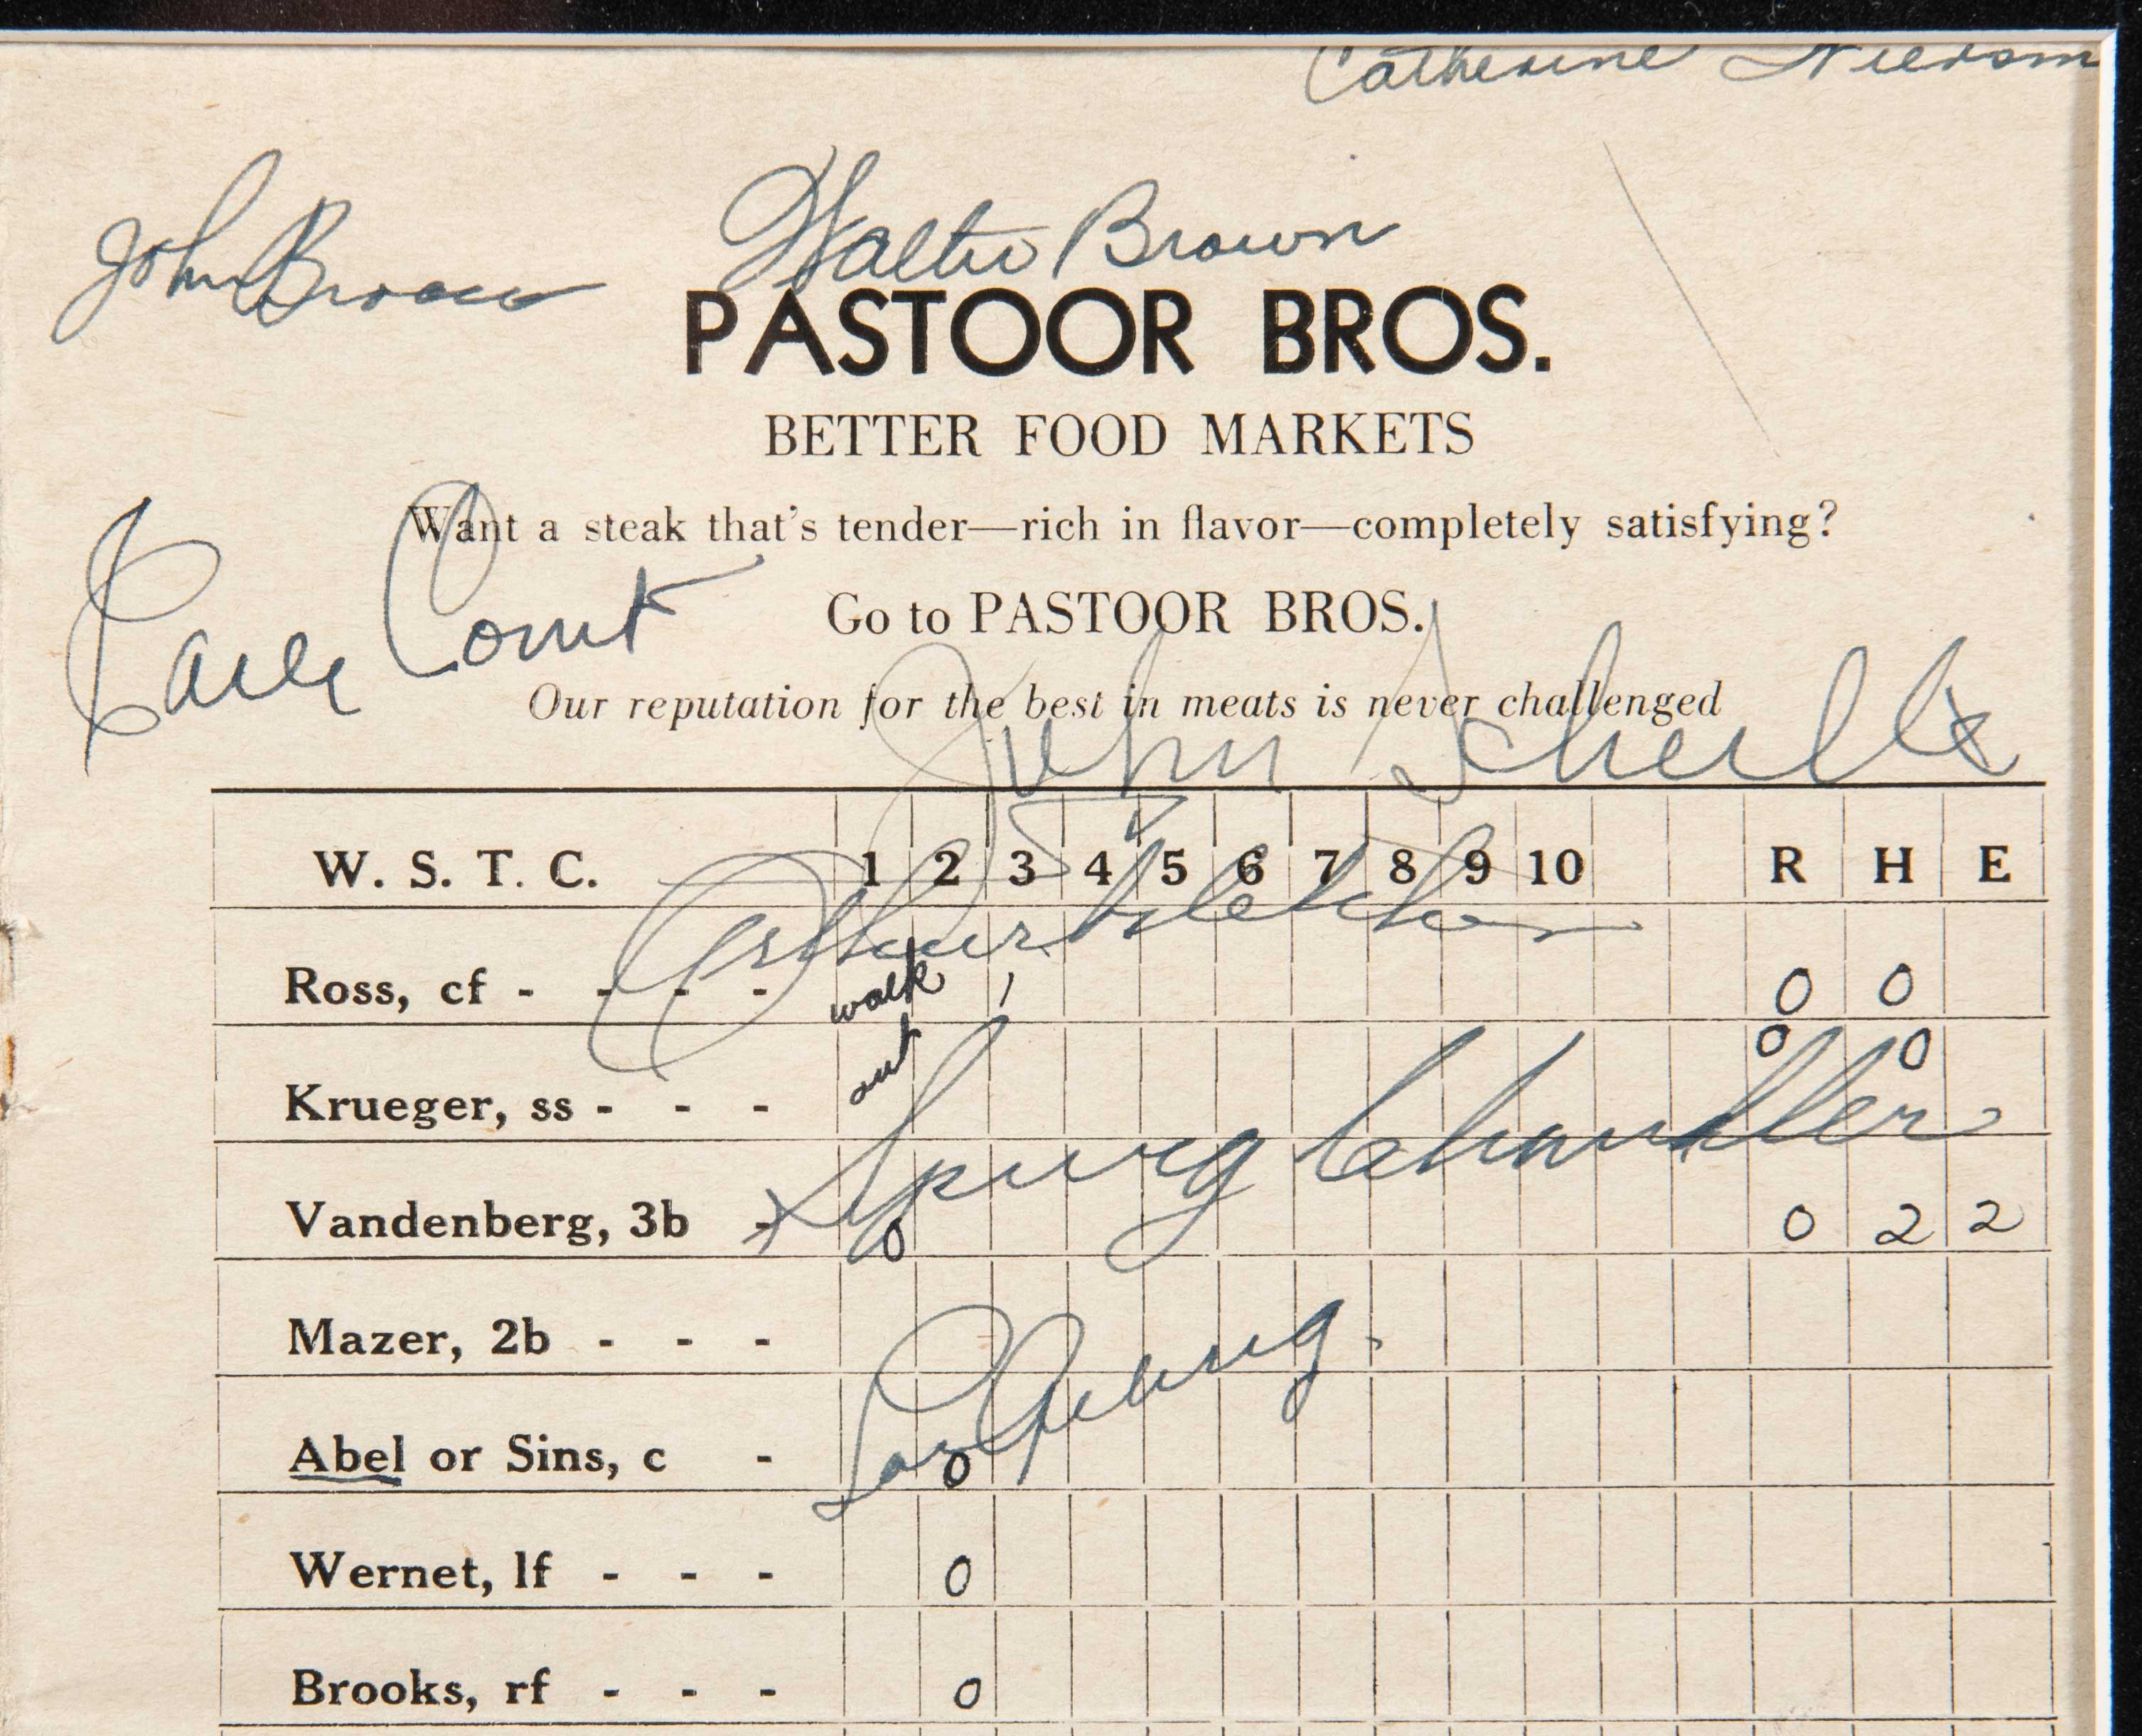 Catherine
John Brown
Walter Brown
PASTOOR BROS.
BETTER FOOD MARKETS
Want a steak that's tender—rich in flavor—completely satisfying?
Earle Combs
Go to PASTOOR BROS.
Our reputation for the best in meats is never challenged
John Schulte
W. S. T. C. 1 2 3 4 5 6 7 8 9 10 R H E
Arthur Fletcher
Ross, cf - - - - walk 0 0
Krueger, ss - - - out 0 0
Spurg Chandler
Vandenberg, 3b - 0 0 2 2
Mazer, 2b - - -
Lou Gehrig.
Abel or Sins, c - 0
Wernet, lf - - - 0
Brooks, rf - - - 0